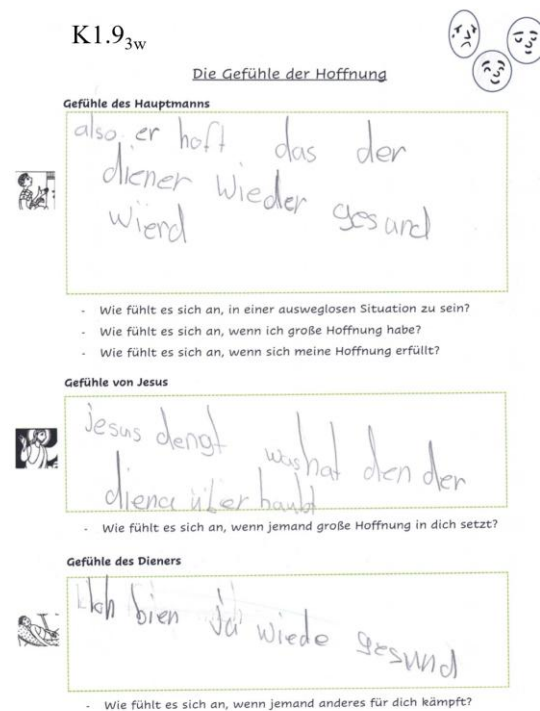 K1.9 3w
Die Gefühle der Hoffnung
Gefühle des Hauptmanns
also er hoft das der
diener wieder gesund
wierd
- Wie fühlt es sich an, in einer ausweglosen Situation zu sein?
- Wie fühlt es sich an, wenn ich große Hoffnung habe?
- Wie fühlt es sich an, wenn sich meine Hoffnung erfüllt?
Gefühle von Jesus
jesus dengt was hat den der
diena über haubt
- Wie fühlt es sich an, wenn jemand große Hoffnung in dich setzt?
Gefühle des Dieners
Ich bien ja wiede gesund
- Wie fühlt es sich an, wenn jemand anderes für dich kämpft?